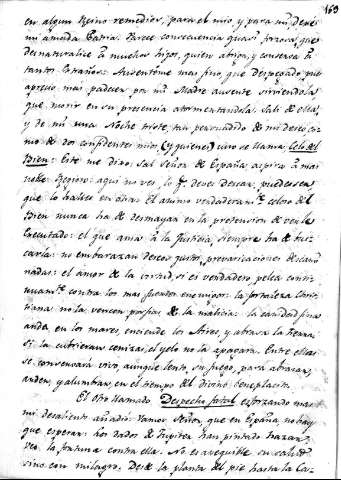 163
en algun Reino remedios, para el mio, y para mi, Deve
mi amada Patria. Parece consecuencia quasi forzosa, que
desnaturalice à muchos hijos, quien abriga, y conserva à
tantos Estraños: Ausentème mas fino, que despegado, pues
aprecio mas padecer por mi Madre ausente sirviendola
que morir en su presencia atormentandola. Salí de ella,
y de mi una Noche triste, tan persuadido de mi deseo, co-
mo de dos confidentes mios, (y quienes) uno se llama Celo del
Bien: Este me dixo: Sal Señor de España, aspira à mas
Reyno: aqui no ves, lo q. deve desear, puede ser
que lo halles en otras. El animo verdaderam.te celoso del
Bien nunca ha de desmayar en la pretension de verle
Executado: el que ama à la Justicia, siempre ha de bus-
carla: no embarazan deseos justos, prevaricaciones
nadas: el amor de la virtud, si es verdadero pelea conti-
nuam.te contra los mas fuertes enemigos: la fortaleza Chris-
tiana no la vencen porfias de la malicia: la caridad fina
anda en los mares, enciende los Aires, y abrasa la tierra:
si la cubrieran cenizas, el yelo no la apagara. Entre ellas
se conservarà vivo, aunque lento su fuego, para abrasar,
arder, y alumbrar, en el tiempo del divino beneplacito.
El otro llamado Despecho fatal esforzando mas
mi desaliento añadió: Vamos Señor, que en España no hay
que esperar: los dados de Jupiter han pintado hazar:
ves la fortuna contra ella. No es asequible su salud
sino con milagro. Desde la planta del pie hasta la Ca-